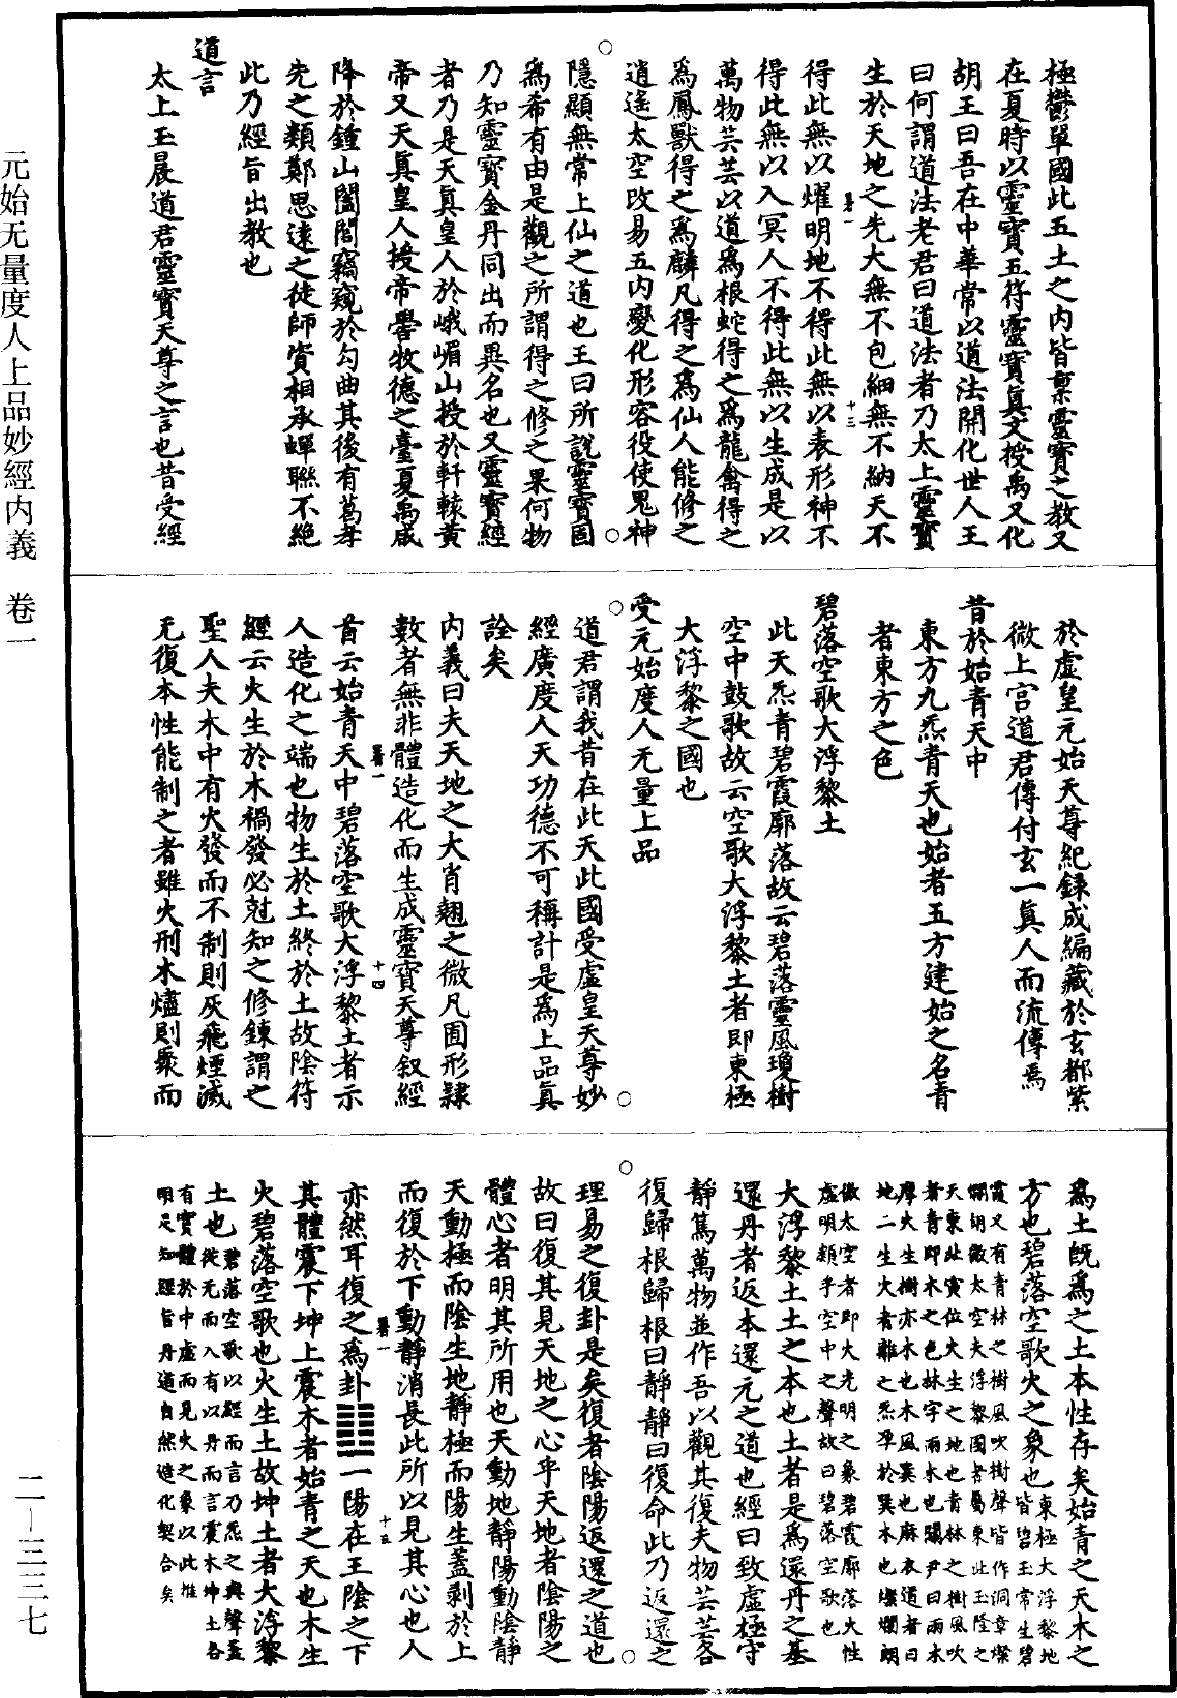 元始无量度人上品妙經內義　卷一
二－三三七
極鬱單國此五土之內皆稟靈寶之教又
在夏時以靈寶五符靈寶真文授禹又化
胡王曰吾在中華常以道法開化世人王
曰何謂道法老君曰道法者乃太上靈寶
生於天地之先大無不包細無不納天不
得此無以燿明地不得此無以表形神不
得此無以入冥人不得此無以生成是以
萬物芸芸以道爲根蛇得之爲龍禽得之
爲鳳獸得之爲麟凡得之爲仙人能修之
逍遙太空改易五內變化形容役使鬼神
隱顯無常上仙之道也王曰所說靈寶固
爲希有由是觀之所謂得之修之果何物
乃知靈寶金丹同出而異名也又靈寶經
者乃是天真皇人於峨嵋山授於軒轅黃
帝又天真皇人授帝嚳牧德之臺夏禹感
降於鍾山闔閭竊窺於勾曲其後有葛孝
先之類鄭思遠之徒師資相承蟬聯不絕
此乃經旨出教也
道言
太上玉晨道君靈寶天尊之言也昔受經
於虛皇元始天尊紀錄成編藏於玄都紫
微上宮道君傳付玄一真人而流傳焉
昔於始青天中
東方九炁青天也始者五方建始之名青
者東方之色
碧落空歌大浮黎土
此天炁青碧霞廓落故云碧落靈風瓊樹
空中鼓歌故云空歌大浮黎土者即東極
大浮黎之國也
受元始度人无量上品
道君謂我昔在此天此國受虛皇天尊妙
經廣度人天功德不可稱計是爲上品真
詮矣
內義曰夫天地之大肖翹之微凡囿形隸
數者無非體造化而生成靈寶天尊叙經
首云始青天中碧落空歌大浮黎土者示
人造化之端也物生於土終於土故陰符
經云火生於木禍發必尅知之修鍊謂之
聖人夫木中有火發而不制則灰飛煙滅
无復本性能制之者雖火刑木燼則聚而
爲土旣爲之土本性存矣始青之天木之
方也碧落空歌火之象也東極大浮黎地皆碧玉常生碧
霞又有青林之樹風吹樹聲皆作洞章燦
爛朗徹太空夫浮黎國者屬東北玉陛之
天東北寅位火生之地也青林之樹風吹
者青即木之色林字兩木也關尹曰兩木
摩火生樹亦木也木風巽也麻衣道者曰
地二生火者離之炁孕於巽木也燦爛朗
徹太空者即火光明之象碧霞廓落火性
虛明類乎空中之聲故曰碧落空歌也
大浮黎土土之本也土者是爲還丹之基
還丹者返本還元之道也經曰致虛極守
靜篤萬物並作吾以觀其復夫物芸芸各
復歸根歸根曰靜靜曰復命此乃返還之
理易之復卦是矣復者陰陽返還之道也
故曰復其見天地之心乎天地者陰陽之
體心者明其所用也天動地靜陽動陰靜
天動極而陰生地靜極而陽生蓋剥於上
而復於下動靜消長此所以見其心也人
亦然耳復之爲卦䷗一陽在五陰之下
其體震下坤上震木者始青之天也木生
火碧落空歌也火生土故坤土者大浮黎
土也碧落空歌以經而言乃炁之與聲蓋從无而入有以丹而言震木坤土各
有實體於中虛而見火之象以此推
明足知經旨丹道自然造化契合矣